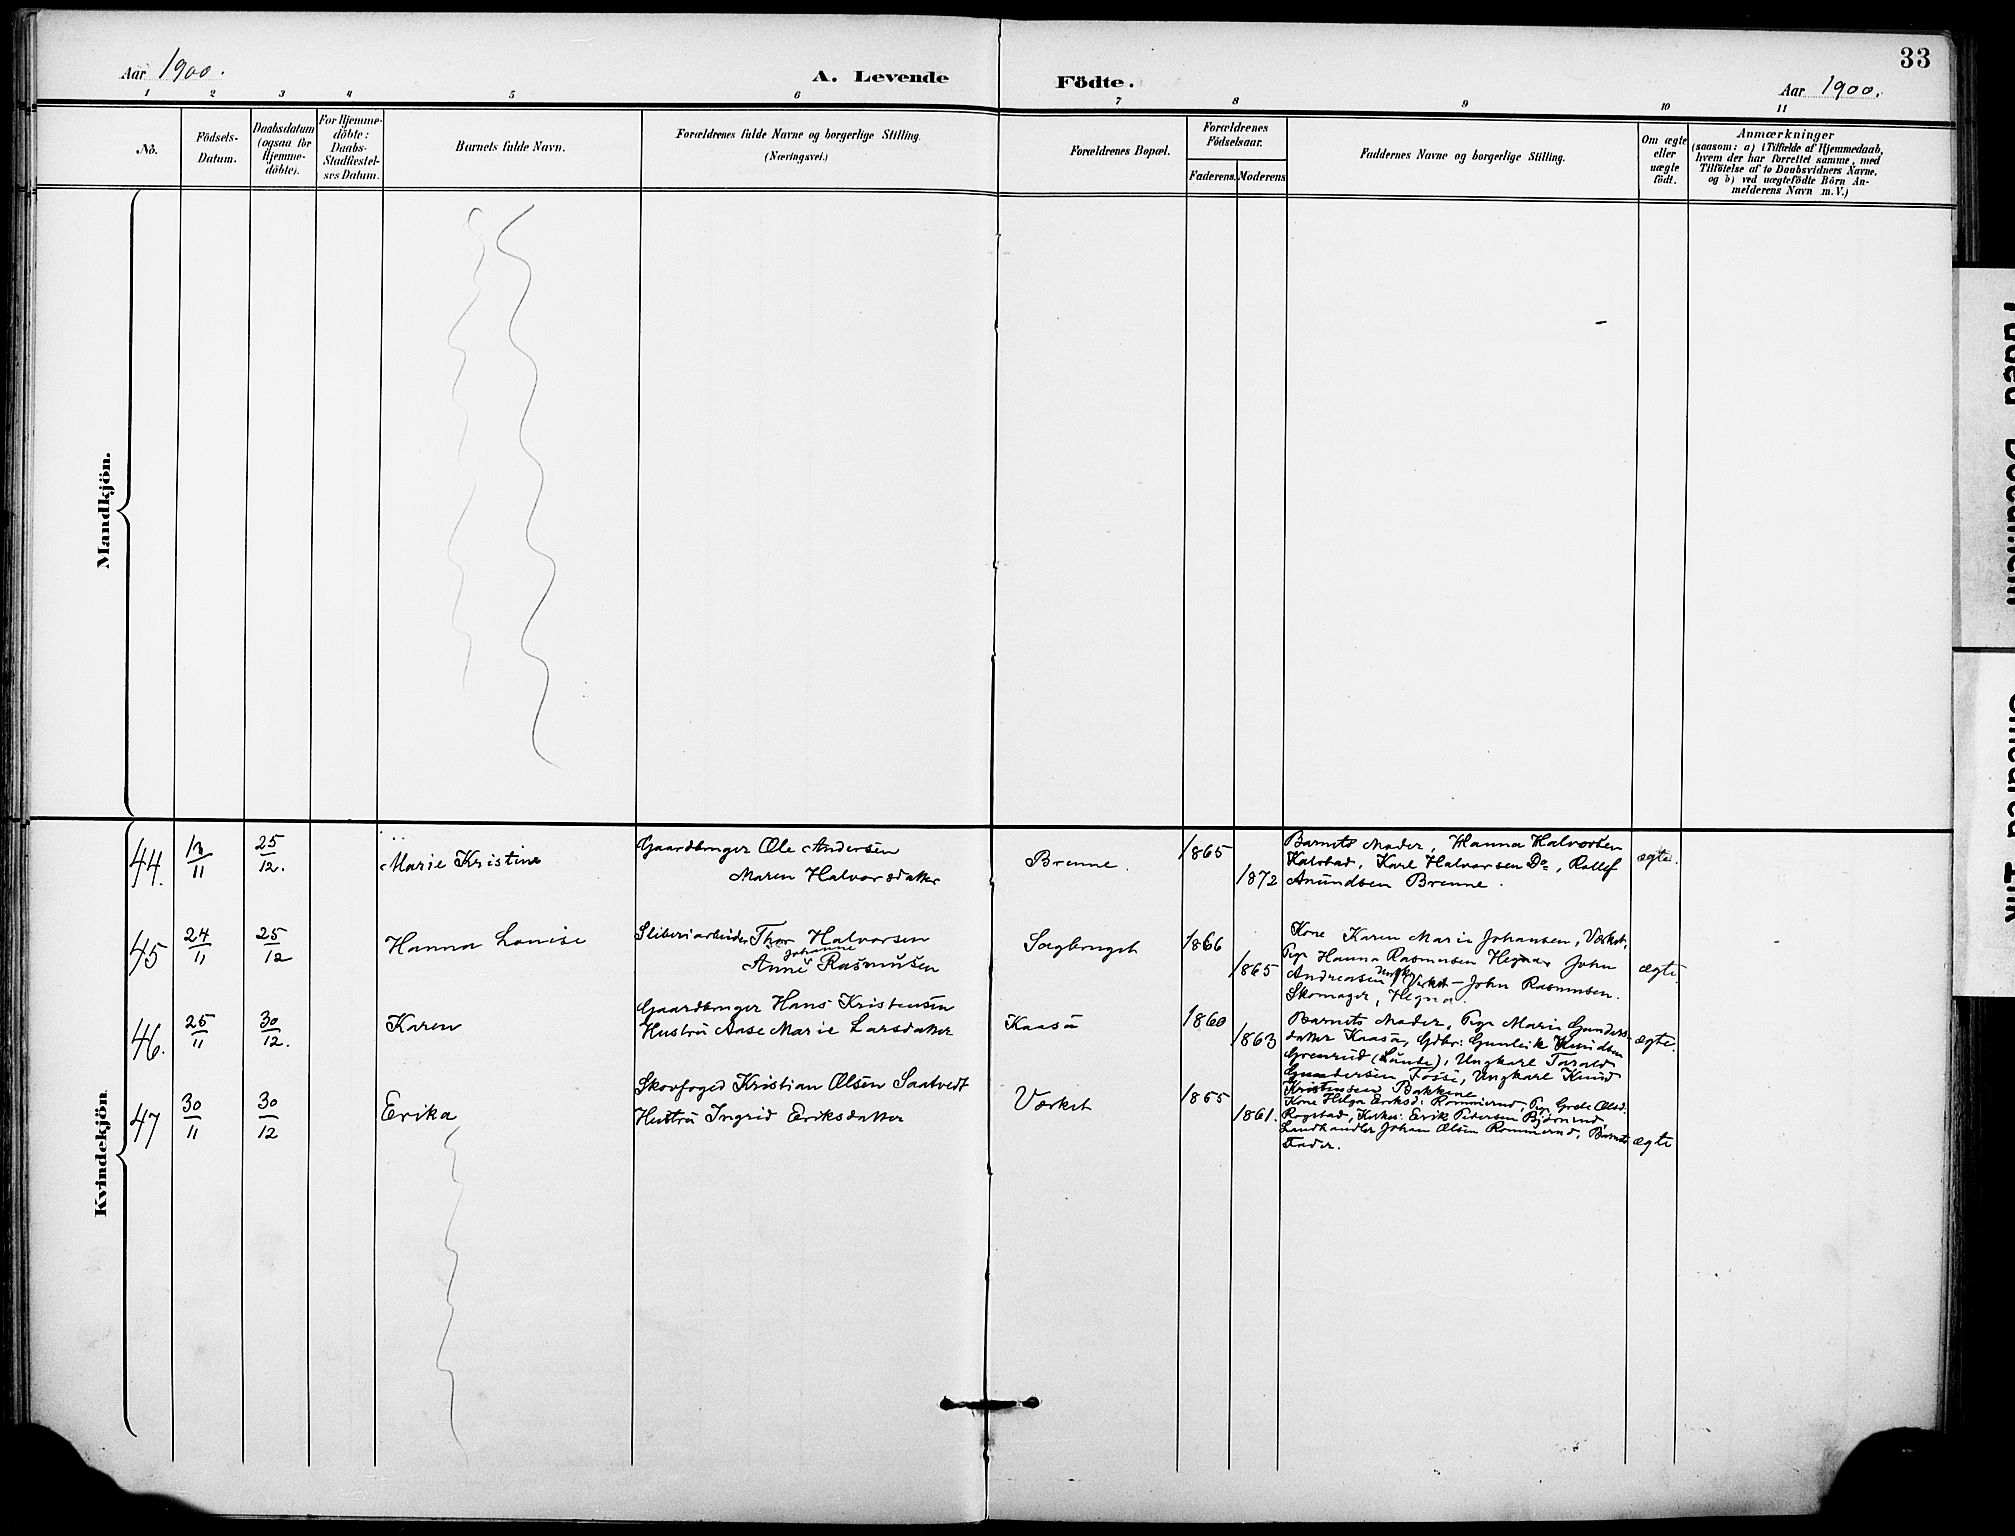 33
Aar 1900.
A. Levende Födte.
Aar 1900.
1 2 3 4 5 6 7 8 9 10 11
No.
Födsels-
Datum.
Daabsdatum
(ogsaa for
Hjemme-
döbte).
For Hjemme-
döbte:
Daabs-
Stadfæstel-
ses Datum.
Barnets fulde Navn.
Forældrenes fulde Navne og borgerlige Stilling
(Næringsvei.)
Forældrenes Bopæl.
Forældrenes
Födselsaar.
Faderens. Moderens
Faddernes Navne og borgerlige Stilling.
Om ægte
eller
uægte
födt.
Anmærkninger
(saasom: a) i Tilfælde af Hjemmedaab,
hvem der har forrettet samme, med
Tilföielse af to Daabsvidners Navne,
og b) ved uægtefödte Börn An-
melderens Navn m. V.)
Mandkjön.
Kvindekjön
44. 13/11 25/12. Marie Kristine
Gaardbruger Ole Andersen
Maren Halvorsdatter
Brenne.
1865
1872
Barnets Moder, Hanna Halvorsen
Kalstad, Karl Halvorsen Do, Rollef
Anundsen Brenne.
ægte.
45 24/11 25/12 Hanna Lovise
Sliberiarbeider Thor Halvorsen
Johanne
Anne Rasmusen
Sagbruget
1866
1865
Kone Karen Marie Johansen, Værket,
Pige Hanna Rasmusen Hegna, John
Andreasen Ungk. Værket — John Rasmusen.
Skomager, Hegna.
ægte.
46. 25/11 30/12. Karen
Gaardbruger Hans Kristensen
Hustru Aase Marie Larsdatter
Kaasa
1860
1863
Barnets Moder, Pige Marie Gunders-
datter Kaasa, Gdbr: Gunleik Knudsen
Grenrud (Lunde), Ungkarl Tarald
Gundersen Fosse, Ungkarl Knud
Kristensen Bakkene
ægte.
47 30/11 30/12 Erika
Skovfoged Kristian Olsen Saatvedt
Hustru Ingrid Eriksdatter
Værket
1865
1861.
Kone Helga Eriksd: Rommerud, Pige Grete Olsd.
Rogstad, Erik Pedersen Bjørnrud,
Landhandler Johan Olsen Rommerud, Barnets
Fader.
ægte